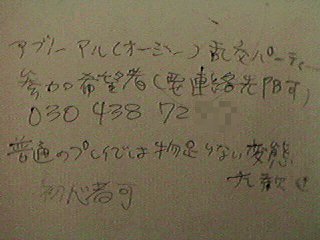 アブノーマル(オージー)乱交パーティー
参加希望者(要連絡先明す)
030 438 72
普通のプレイでは物足りない変態
大歓迎
初心者可